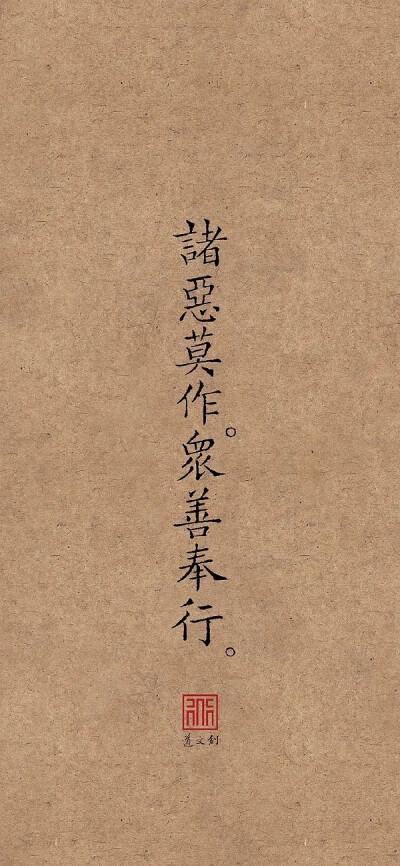 諸惡莫作。眾善奉行。
道文創